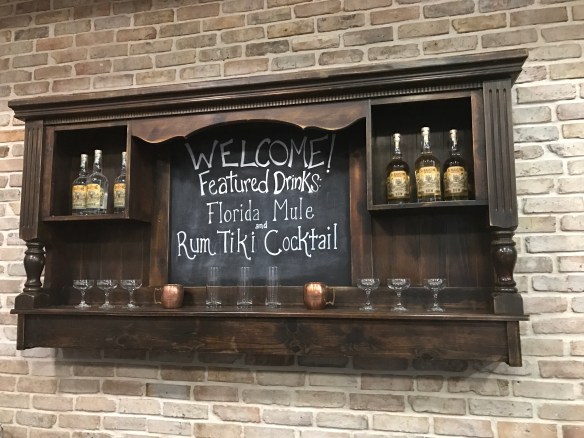 WELCOME!
Featured Drinks:
Florida Mule
and
Rum Tiki Cocktail